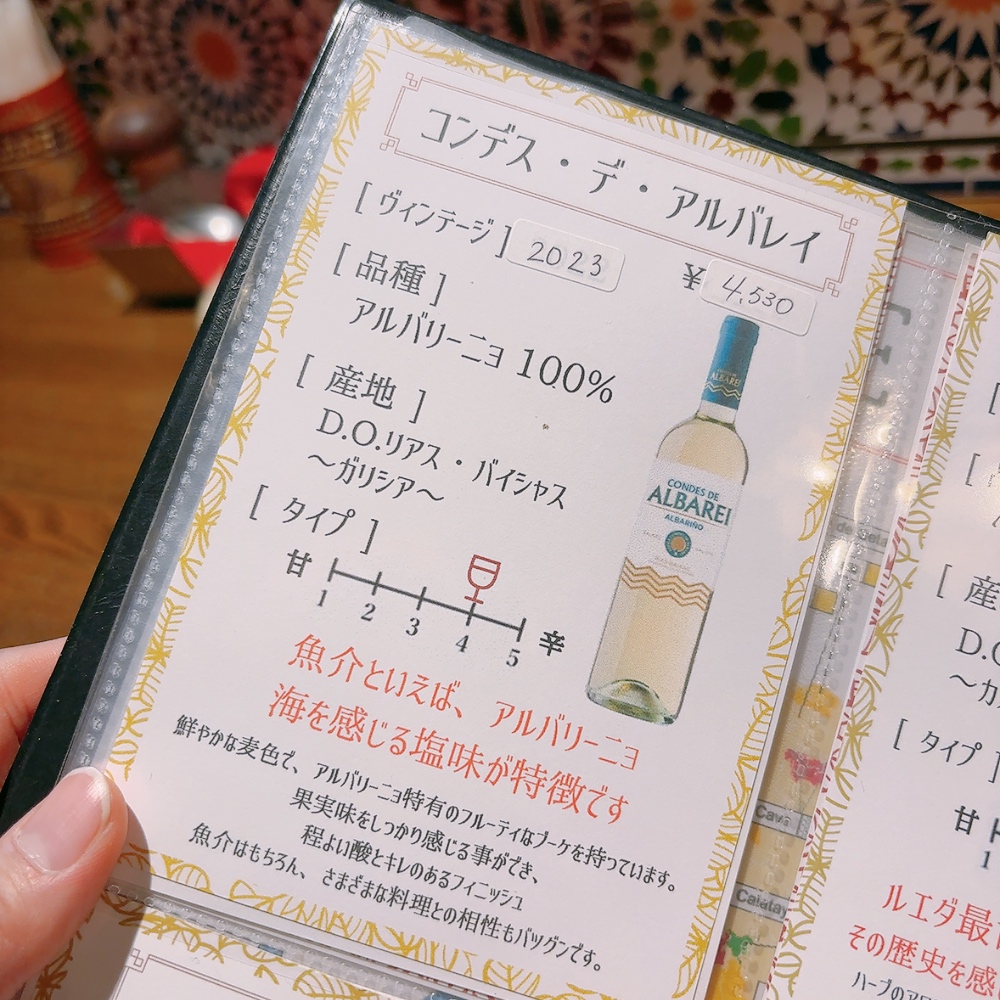 コンデス・デ・アルバレイ
[ ヴィンテージ ] 2023
¥ 4,530
[ 品種 ]
アルバリーニョ 100%
[ 産地 ]
D.O.リアス・バイシャス
～ガリシア～
[ タイプ ]
甘 1 2 3 4 5 辛
CONDES DE
ALBAREI
ALBARIÑO
ALBAREI
魚介といえば、アルバリーニョ
海を感じる塩味が特徴です
鮮やかな麦色で、アルバリーニョ特有のフルーティなブーケを持っています。
果実味をしっかり感じる事ができ、
程よい酸とキレのあるフィニッシュ
魚介はもちろん、さまざまな料理との相性もバツグンです。
Cava
Calatay
[ 産
D.O
～ガ
[ タイプ ]
甘
1
ルエダ最
その歴史を感
ハーブのア